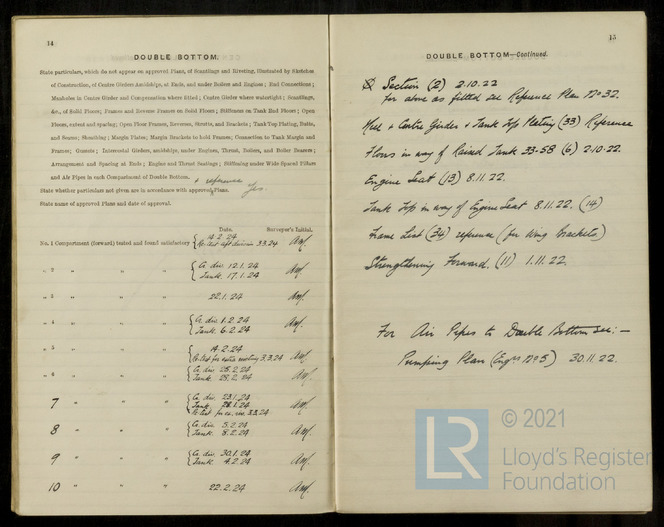 14
DOUBLE BOTTOM.
State particulars, which do not appear on approved Plans, of Scantlings and Riveting, illustrated by Sketches
of Construction, of Centre Girders Amidships, at Ends, and under Boilers and Engines; End Connections;
Manholes in Centre Girder and Compensation where fitted; Centre Girder where watertight; Scantlings,
&c., of Solid Floors; Frames and Reverse Frames on Solid Floors; Stiffeners on Tank End Floors; Open
Floors, extent and spacing; Open Floor Frames, Reverses, Struts, and Brackets; Tank Top Plating, Butts,
and Seams; Sheathing; Margin Plates; Margin Brackets to hold Frames; Connection to Tank Margin and
Frames; Gussets; Intercostal Girders, amidships, under Engines, Thrust, Boilers, and Boiler Bearers;
Arrangement and Spacing at Ends; Engine and Thrust Seatings; Stiffening under Wide Spaced Pillars
and Air Pipes in each Compartment of Double Bottom.
+ reference
State whether particulars not given are in accordance with approved Plans. Yes.
State name of approved Plans and date of approval.
Date. Surveyor's Initial.
No. 1 Compartment (forward) tested and found satisfactory 14.2.24
Re-test 3.3.24
„ 2 „ „ „ C. div. 12.1.24
Tank. 17.1.24
„ 3 „ „ „ 22.1.24
„ 4 „ „ „ C. div. 1.2.24
Tank. 6.2.24
„ 5 „ „ „ 14.2.24
Re-test 3.3.24
„ 6 „ „ „ C. div. 25.2.24
Tank 28.2.24
7 „ „ „ C. div. 23.1.24
Tank 28.1.24
Re-test 3.3.24
8 „ „ „ C. div. 5.2.24
Tank. 8.2.24
9 „ „ „ C. div. 30.1.24
Tank 4.2.24
10 „ „ „ 22.2.24
15
DOUBLE BOTTOM—Continued.
Section (2) 2.10.22
for above as fitted see Reference Plan No 32.
Keel & Centre Girder & Tank Top Plating (33) Reference
Floors in way of Raised Tank 33-58 (6) 2.10.22.
Engine Seat (13) 8.11.22.
Tank Top in way of Engine Seat 8.11.22. (14)
Frame List (34) reference (for Wing Brackets)
Strengthening Forward. (11) 1.11.22.
For Air Pipes to Double Bottom see:—
Pumping Plan (Engrs No 5) 30.11.22.
LR
© 2021
Lloyd's Register
Foundation